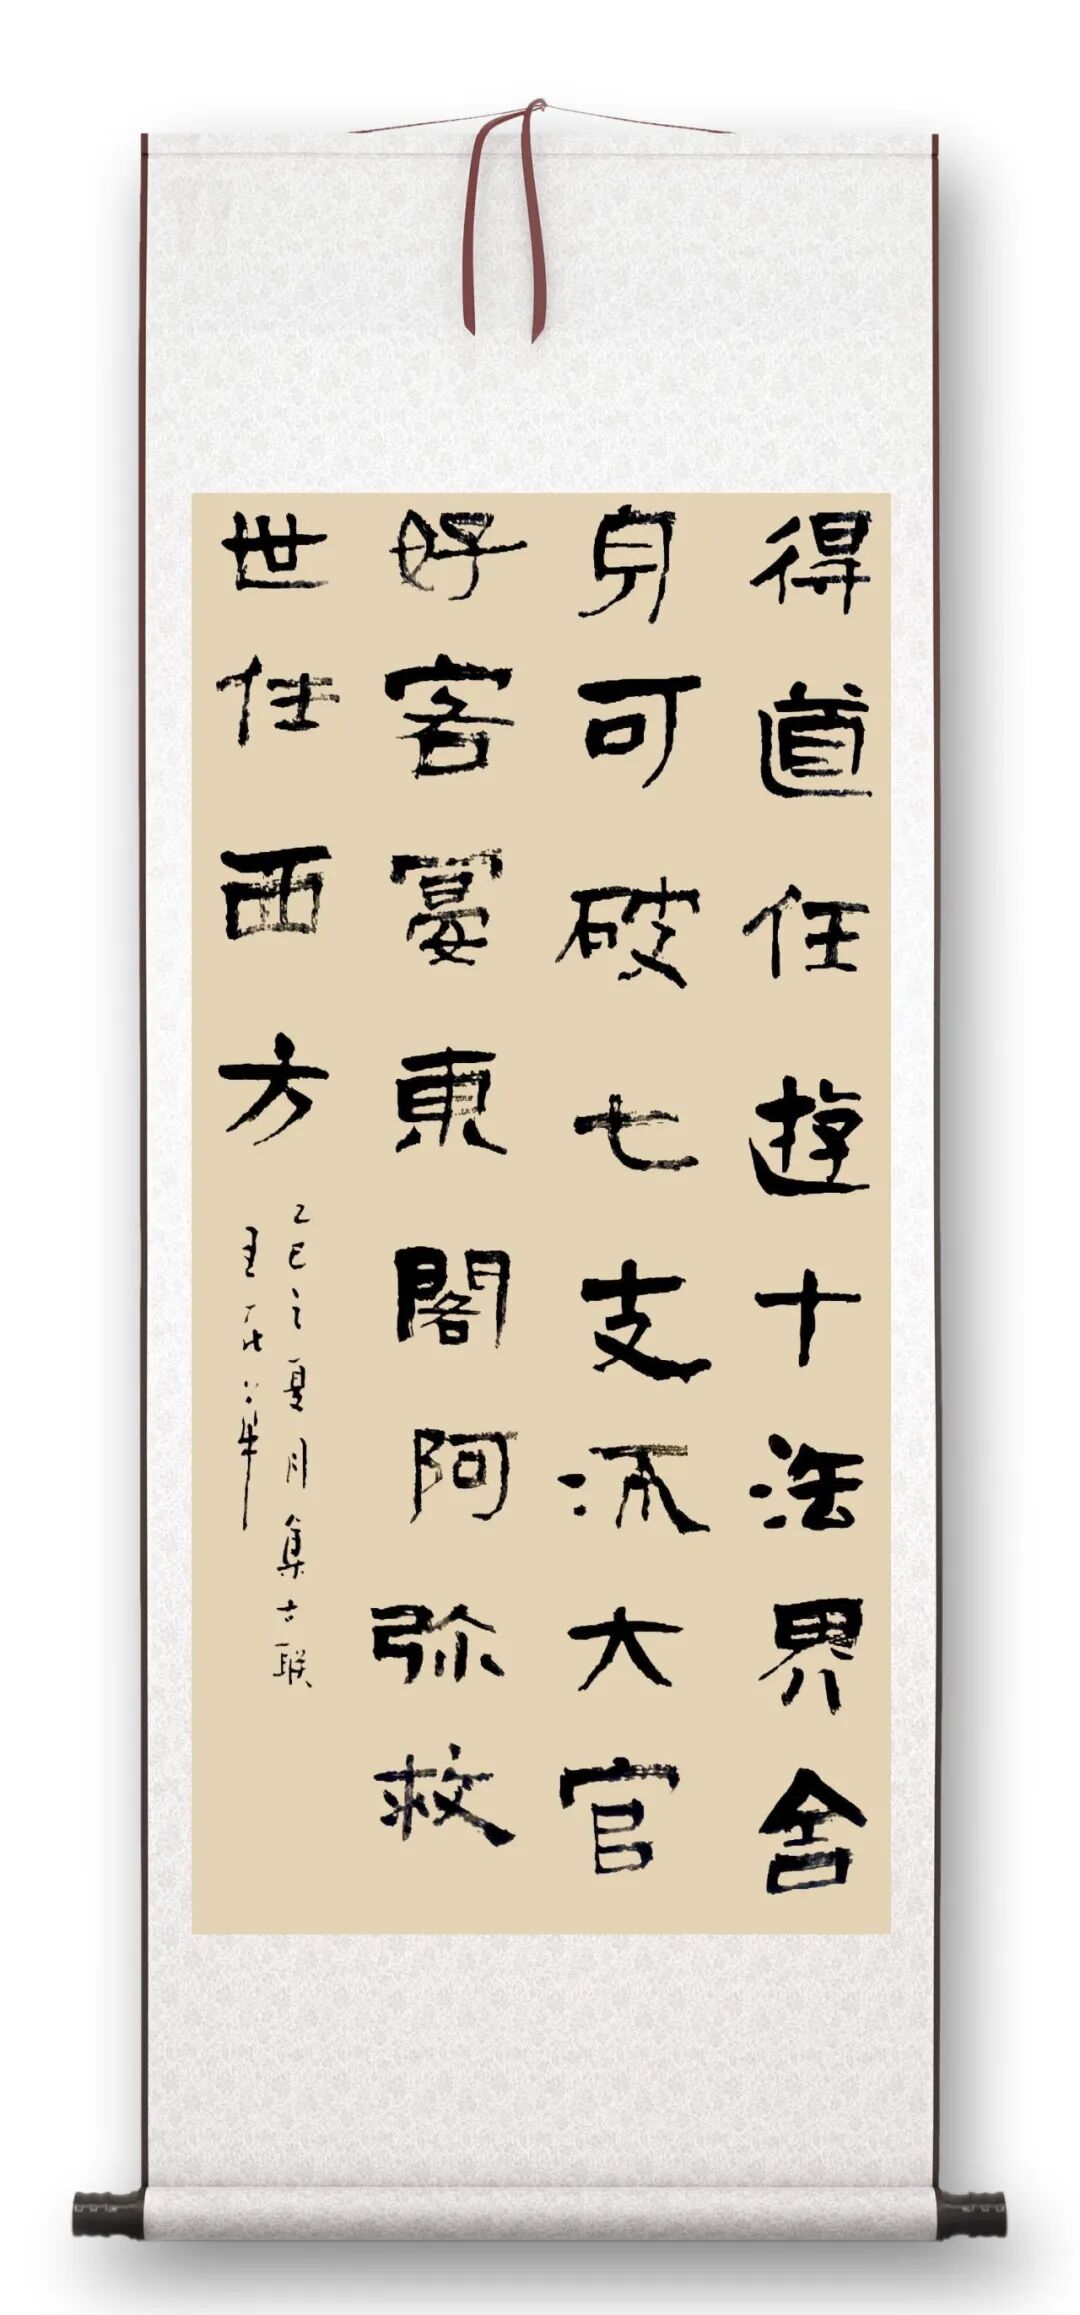 得道任遊十法界舍
身可破七支流大官
好客宴東閣阿弥救
世住西方
乙巳之夏月集古联
王